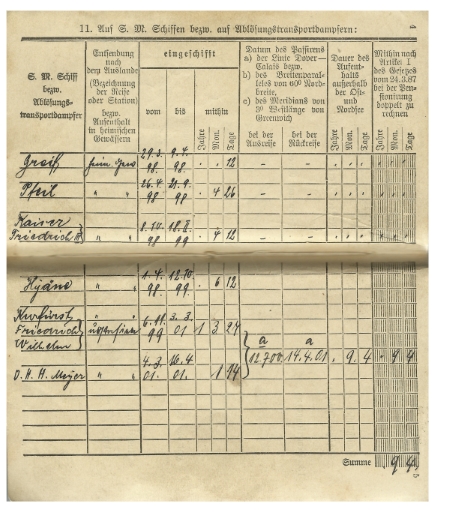 4
11. Auf S. M. Schiffen bezw. auf Ablösungstransportdampfern:
S. M. Schiff
bezw.
Ablösungs-
transportdampfer
Entsendung
nach
dem Auslande
(Bezeichnung
der Reise
oder Station)
bezw.
Aufenthalt
in heimischen
Gewässern
eingeschifft
vom
bis
mithin
Jahre
Mon.
Tage
Datum des Passierens
a) der Linie Dover—
Calais bezw.
b) des Breitenparal-
leles von 60° Nord-
breite,
c) des Meridians von
3° Westlänge von
Greenwich
bei der
Ausreise
bei der
Rückreise
Dauer des
Aufent-
halts
außerhalb
der Ost-
und
Nordsee
Jahre
Mon.
Tage
Mithin nach
Artikel 1
des Gesetzes
vom 24.3.87
bei der Pen-
sionierung
doppelt zu
rechnen
Jahre
Mon.
Tage
Greif heim. Gew. 29.3. 98. 9.4. 98. " " 12 – –
Pfeil " " 26.4. 98 21.9. 98 " 4 26 – –
Kaiser
Friedrich III " " 98 99 " 4 12 – –
Hyäne " " 1.4. 98. 12.10. 99. " 6 12
Kurfürst
Friedrich
Wilhelm
Ostasien 99 3.3. 01 1 3 27
a a
12.7.00 14.4.01 " 9 4 " 9 4
O. H. Meyer " " 4.3. 01. 16.4. 01. " 1 14
Summe 9 4
5